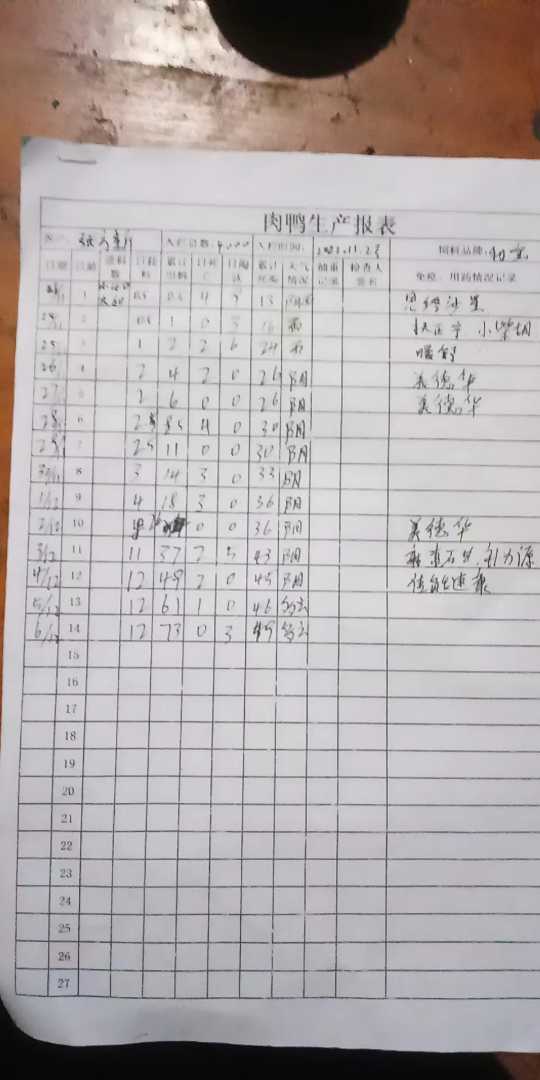 肉鸭生产报表
入栏总数: 4000 入栏时间: 2021.11.23 饲料品牌:
日期 日龄 进料数 日耗料 累计耗料 日死亡 日淘汰 累计死淘 天气情况 抽重记录 检查人签名 免疫、用药情况记录
1 0.5 0.5 4 13 恩诺沙星
2 0.5 1 0 3 16 雨 小柴胡
25/11 3 1 2 2 6 24 雨
26/11 4 2 4 2 0 26 阴 美德华
27 2 6 0 0 26 阴 美德华
28 6 2.5 8.5 4 0 30 阴
29 2.5 11 0 0 30 阴
30/11 8 3 14 3 0 33 阴
1/12 9 4 18 3 0 36 阴
2/12 10 0 0 36 阴 美德华
3/12 11 11 37 2 5 43 阴
4/12 12 12 49 2 0 45 阴
5/12 13 12 61 1 0 46 多云
6/12 14 12 73 0 3 49 多云
15
16
17
18
19
20
21
22
23
24
25
26
27